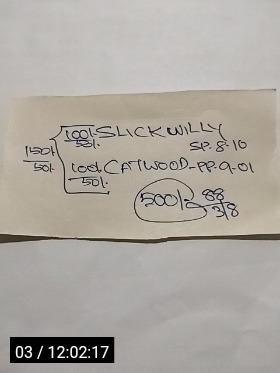 100/- SLICKWILLY
50/-
SP-8-10
150/-
50/-
100/- CATWOOD-PP-9-01
50/-
500/- 88
3/8
03 / 12:02:17